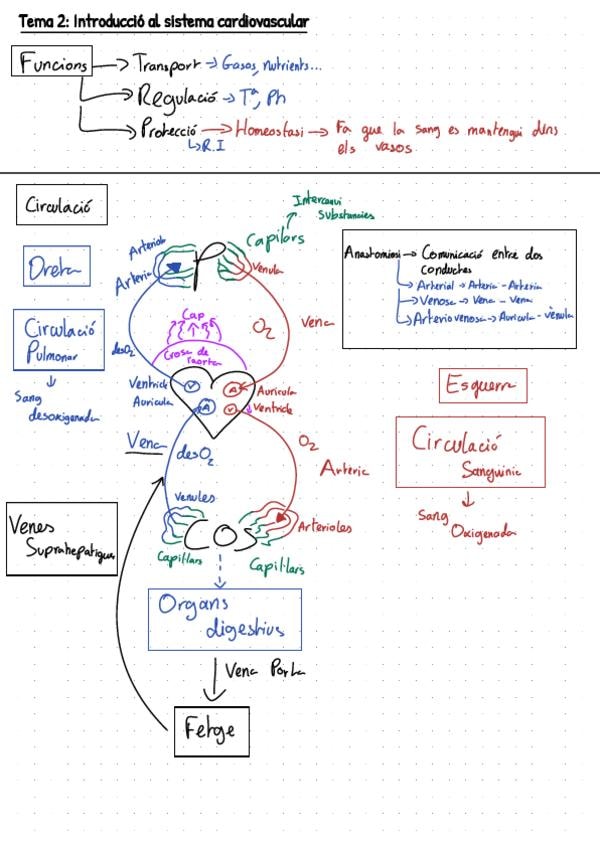 Tema 2: Introducció al sistema cardiovascular
Funcions → Transport → Gasos, nutrients...
→ Regulació → Tª, Ph
→ Protecció → Homeostasi → Fa que la sang es mantengui dins
↳ R.I
els vasos
Circulació
Dreta
Circulació
Pulmonar
Sang
desoxigenada
Intercanvi
Substancies
Capilars
Arteriola
Arteria
P
Venula
Vena
O2
desO2
Cap
Crosa de
l'aorta
Ventricle
Auricula
V
A
A
V
Auricula
Ventricle
Vena
desO2
O2
Arteria
Venules
COS
Arterioles
Capil·lars
Capil·lars
Anastomosi → Comunicació entre dos
conductes
→ Arterial → Arteria - Arteria
→ Venosa → Vena - Vena
→ Arteriovenosa → Auricula - vènula
Esquerra
Circulació
Sanguinia
Sang
Oxigenada
Venes
Suprahepatiques
Organs
digestius
Vena Porta
Fetge